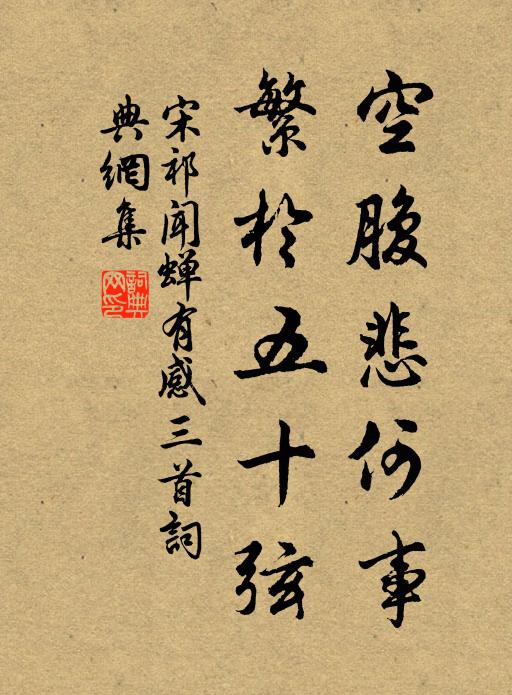 空腹悲何事
繁於五十弦
宋祁闻蝉有感三首詞
典網集
詞典
网印